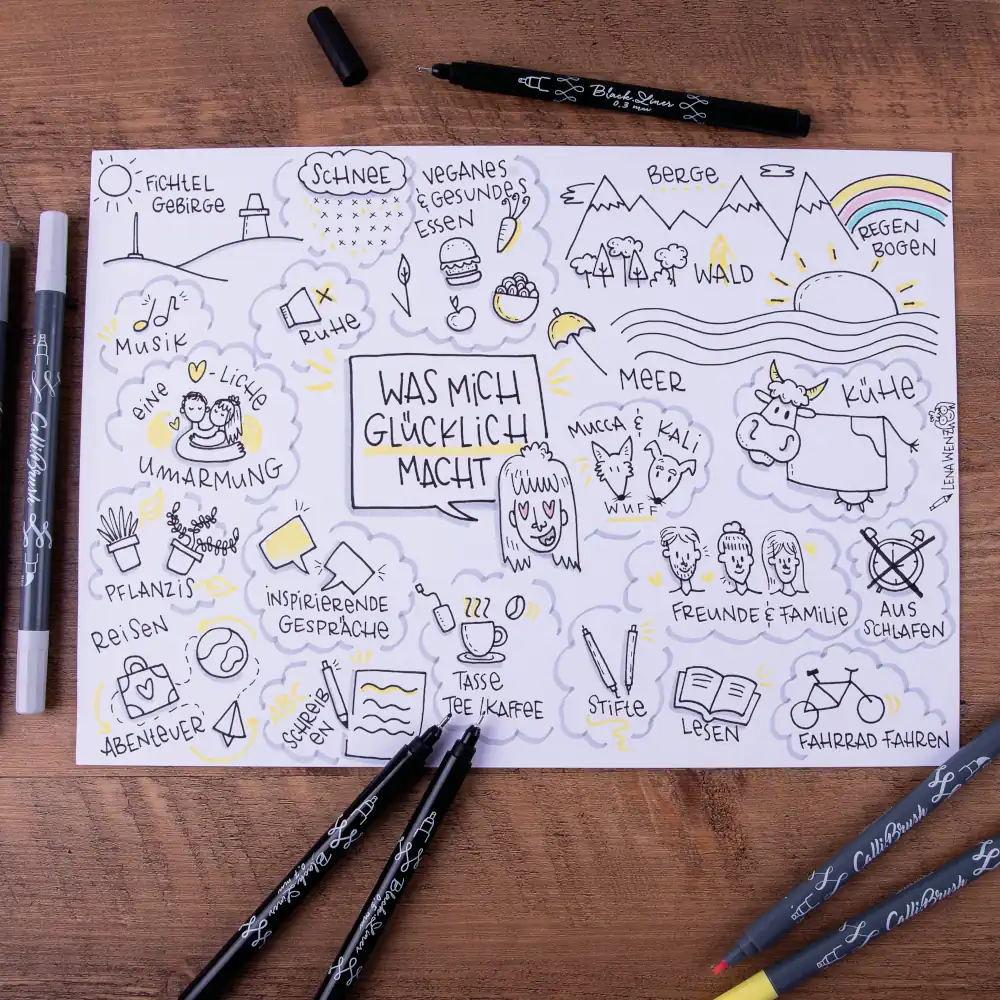 Black Liner
0,3 mm
FiCHTEL
GEBIRGE
SCHNEE
VEGANES
& GESUNDES
ESSEN
BERGE
REGEN
BOGEN
WALD
MUSiK
RUHE
MEER
KÜHE
EiNE -LiCHE
UMARMUNG
WAS MiCH
GLÜCKLiCH
MACHT
MUCCA & KALi
WUFF
LENAWENZ
PFLANZiS
iNSPiRiERENDE
GESPRÄCHE
FREUNDE & FAMiLiE
AUS
SCHLAFEN
REiSEN
ABENTEUER
ABC
SCHREiB
EN
TASSE
TEE / KAFFEE
STiFTE
LESEN
FAHRRAD FAHREN
CalliBrush
Black Liner
0,7 mm
Black Liner
0,5 mm
CalliBrush
CalliBrush